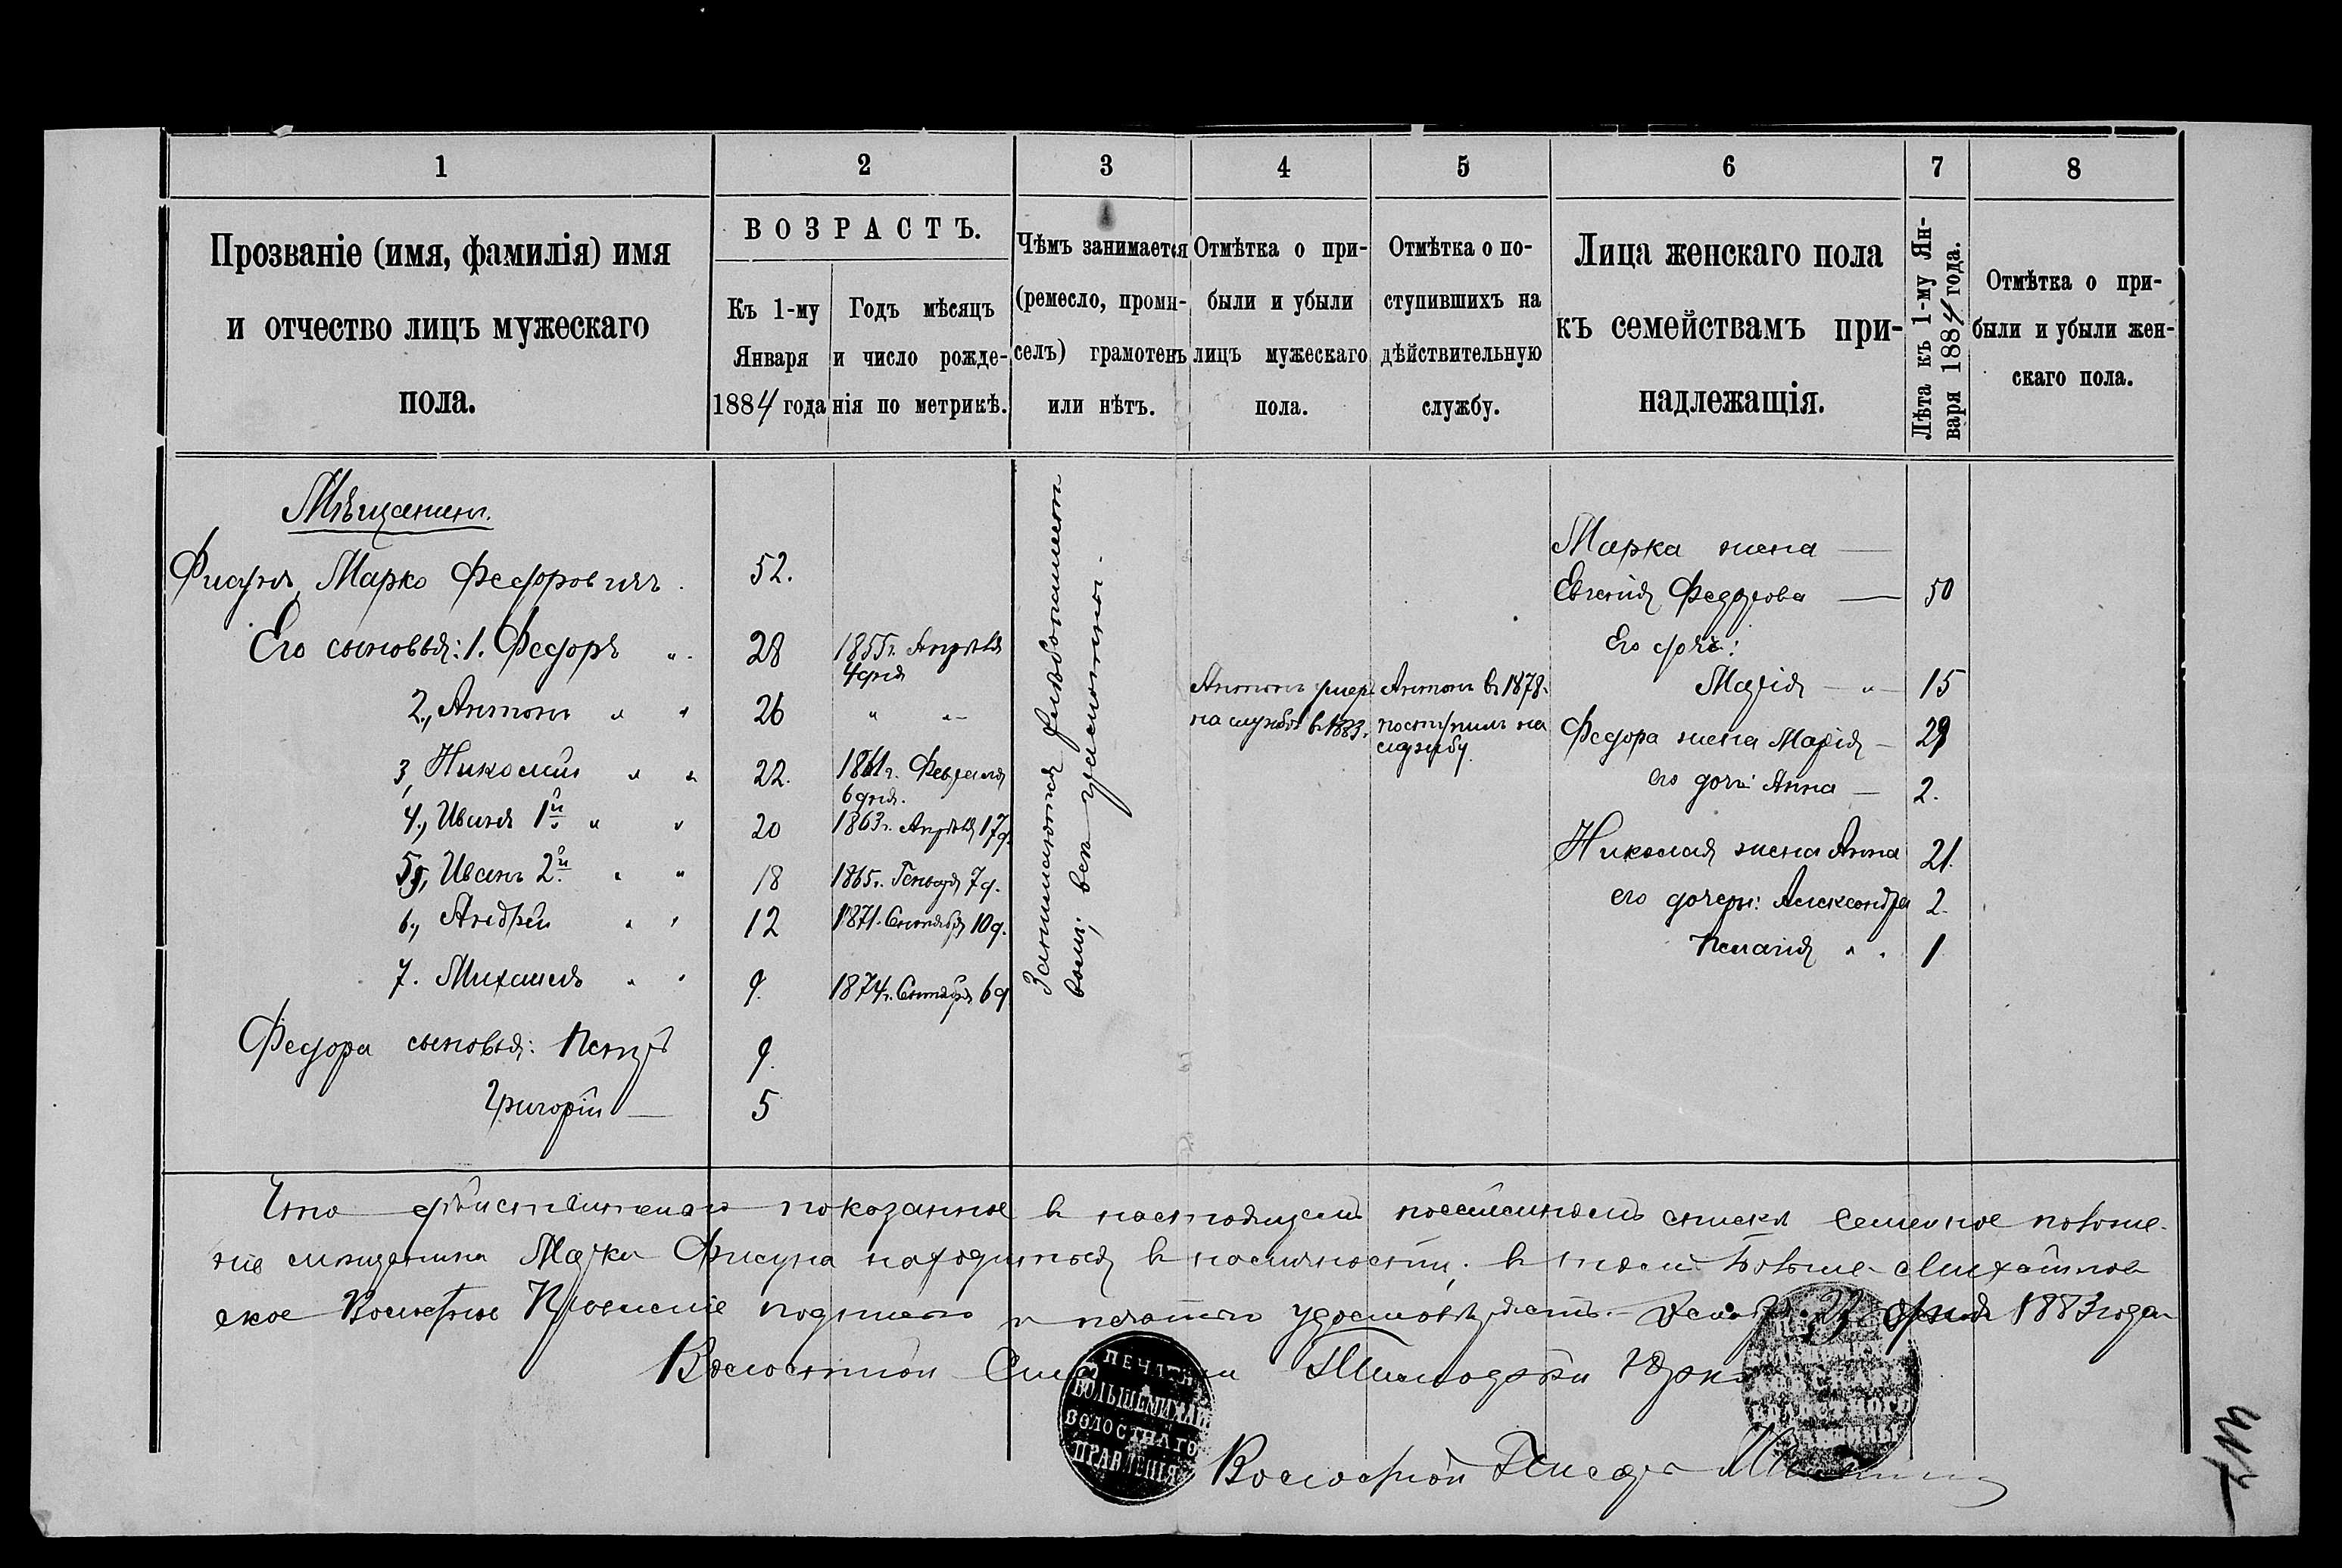 1 2 3 4 5 6 7 8
Прозваніе (имя, фамилія) имя
и отчество лицъ мужескаго
пола.
ВОЗРАСТЪ.
Къ 1-му
Января
1884 года
Годъ мѣсяцъ
и число рожде-
нія по метрикѣ.
Чѣмъ занимается
(ремесло, промы-
селъ) грамотенъ
или нѣтъ.
Отмѣтка о при-
были и убыли
лицъ мужескаго
пола.
Отмѣтка о по-
ступившихъ на
дѣйствительную
службу.
Лица женскаго пола
къ семействамъ при-
надлежащія.
Лѣта къ 1-му Ян-
варя 1884 года.
Отмѣтка о при-
были и убыли жен-
скаго пола.
Мѣщанинъ.
Фисунъ Марко Федоровичъ. 52.
Его сыновья: 1. Федоръ „ 28 1855г. Апрѣля
4 дня
2., Антонъ „ „ 26 „ „
3, Николай „ „ 22. 1861г. Февраля
6 дня.
4., Иванъ 1й „ „ 20 1863г. Апрѣля 17 д.
5, Иванъ 2й „ „ 18 1865г. Генваря 7 д.
6., Андрей „ „ 12 1871. Сентября 10 д.
7. Михаилъ „ „ 9. 1874г. Сентября 6 д
Федора сыновья: Петръ 9.
Григорій — 5
Занимаются хлѣбопашест
вомъ; всѣ
Антонъ умер.
на службѣ в 1883.
Антонъ в 1878.
поступилъ на
службу
Марка жена —
Евгенія Федорова — 50
Его дочь:
Марія — „ — 15
Федора жена Марія — 29
его дочь Анна — 2.
Николая жена Анна 21.
его дочери: Александра 2.
Пелагія „ „ 1
Что дѣйствительно показанное в настоящемъ посемейномъ списке семейное положе-
ніе мещанина Марка Фисуна находится в наличности; в томъ Больше-Михайлов
ское Волостное Правленіе подписью и печатью удостовѣряетъ.— 1883 года
Волостной Тимофей
Волостной Писарь
ПЕЧАТЬ
БОЛЬШЕМИХАЙ
ВОЛОСТНАГО
ПРАВЛЕНІЯ
ВОЛОСТНОГО